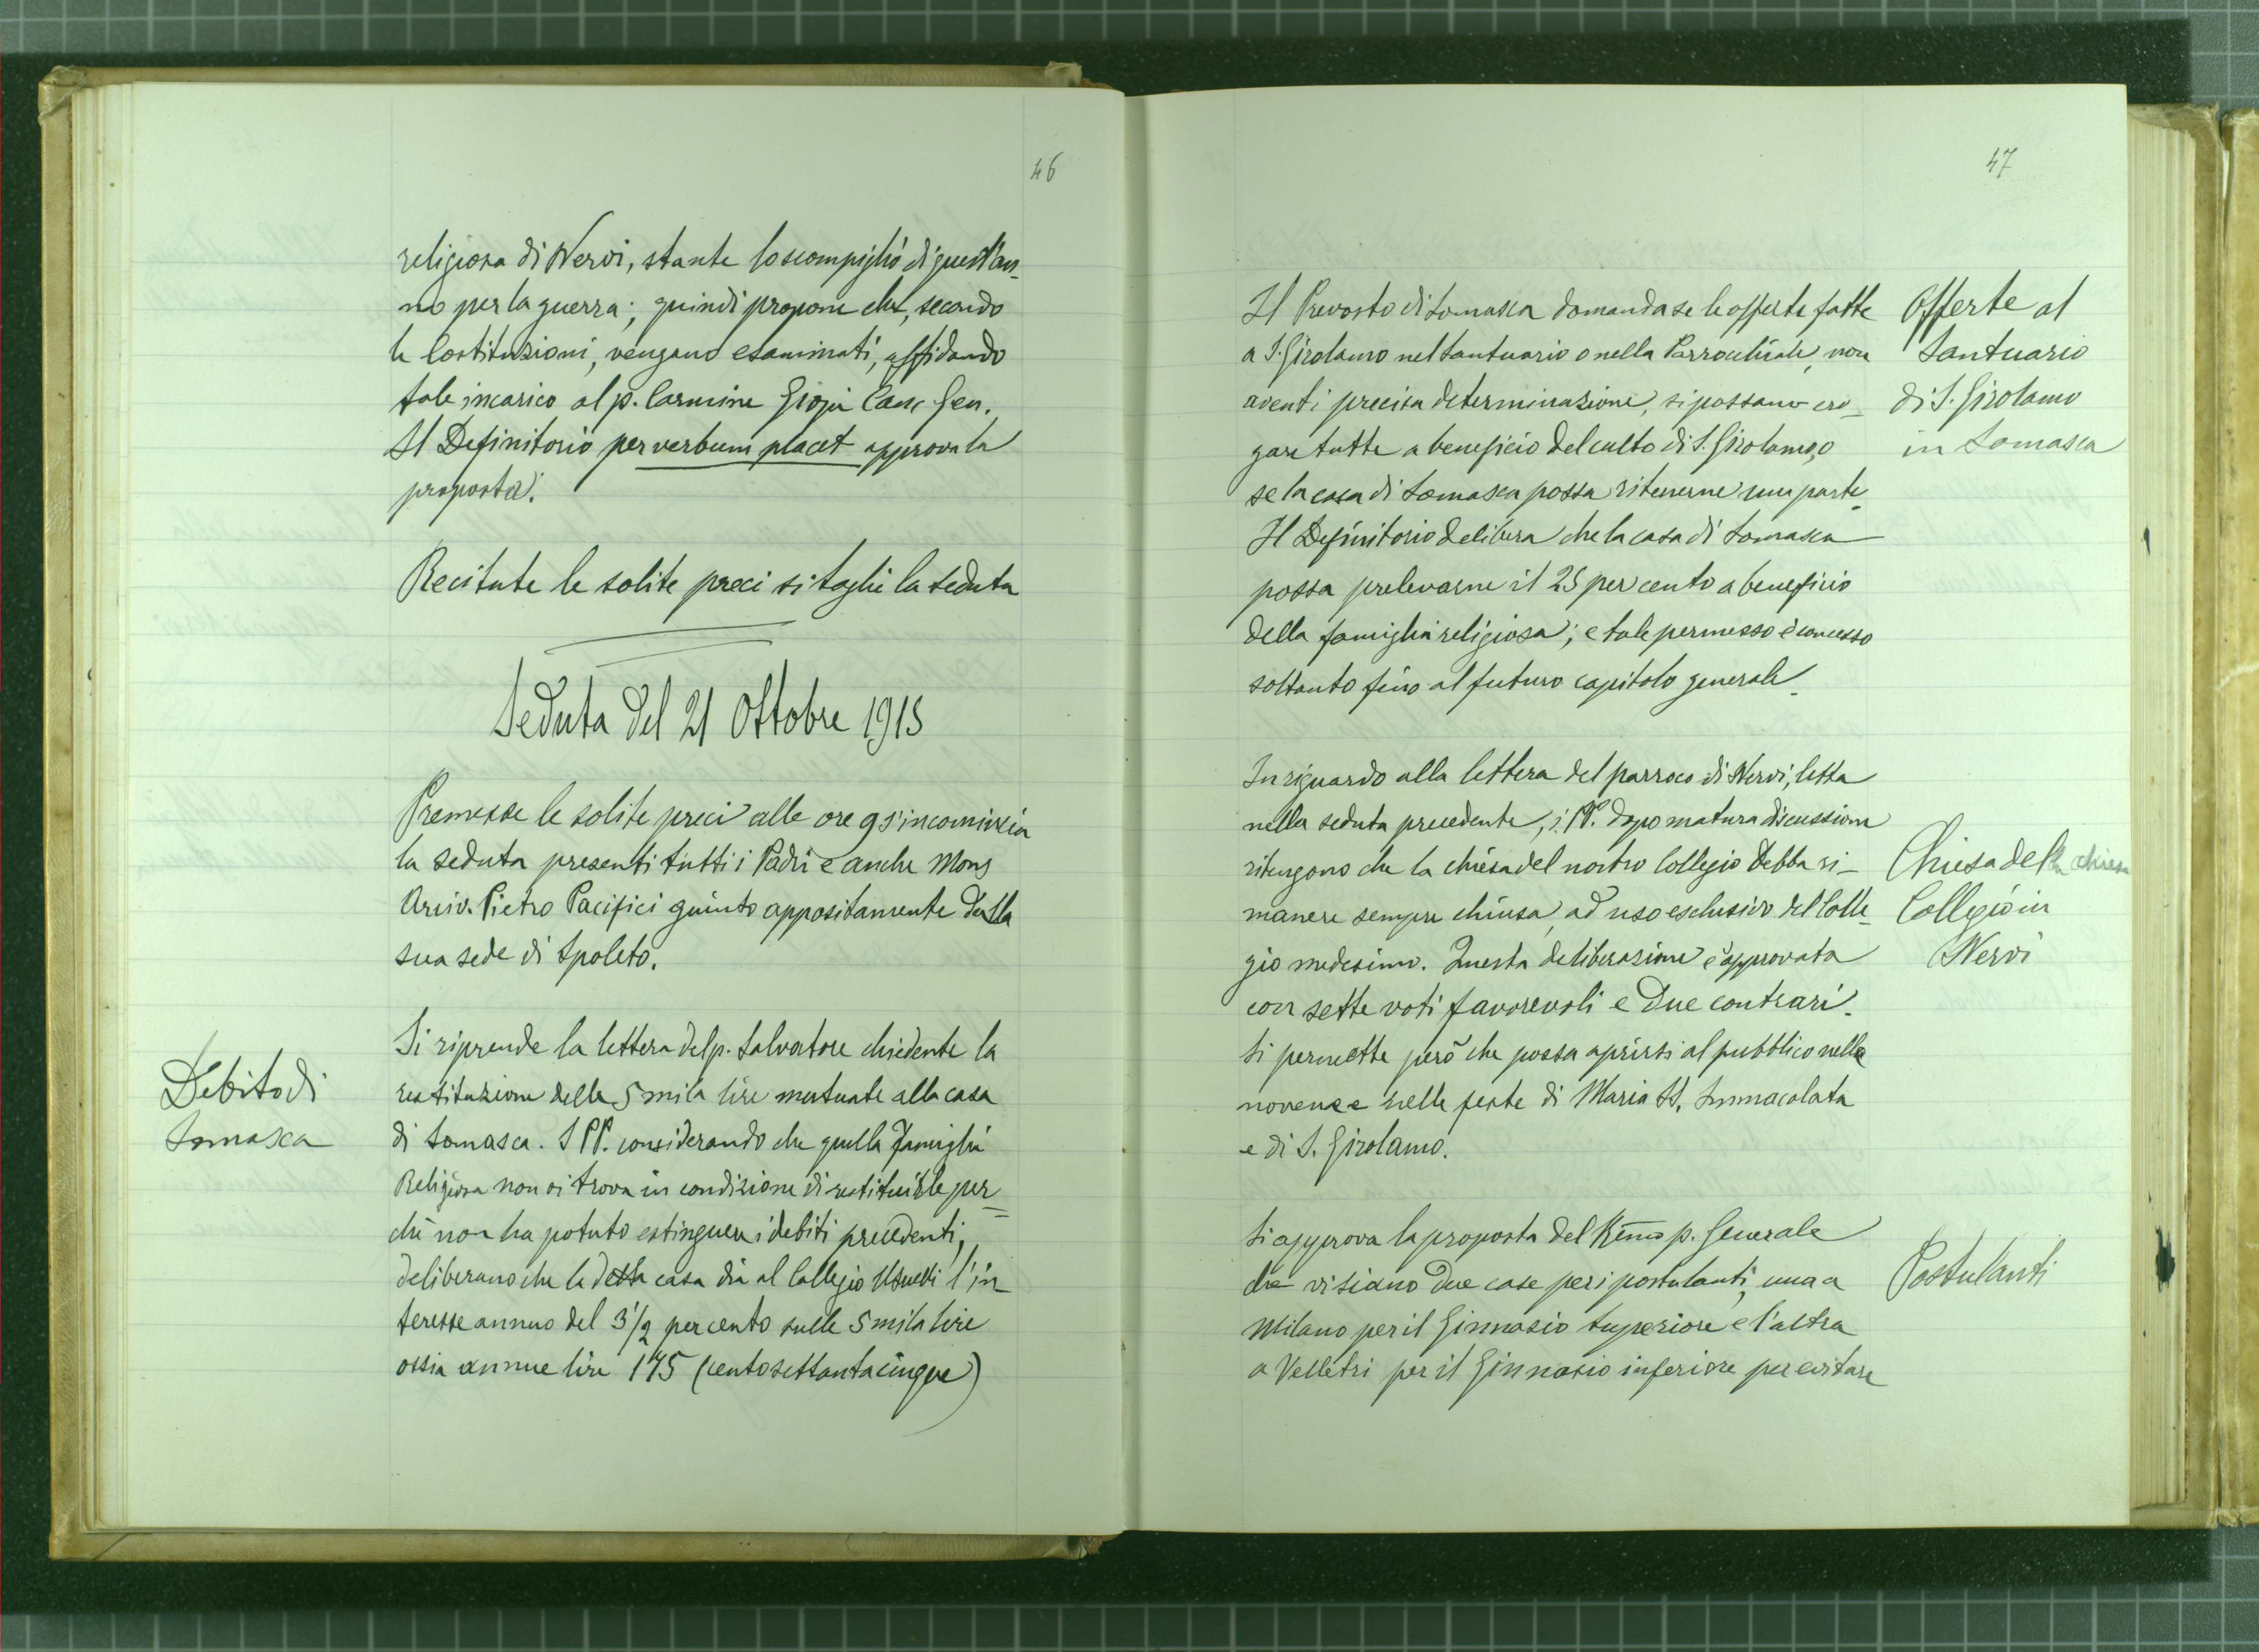 46
religiosa di Nervi, stante lo scompiglio di quest'an-
no per la guerra; quindi propone che, secondo
le Costituzioni, vengano esaminati, affidando
tale incarico al p. Carmine Gioja Canc Gen.
Il Definitorio per verbum placet approva la
proposta.
Recitate le solite preci si toglie la seduta
Seduta del 21 Ottobre 1915
Premesse le solite preci alle ore 9 s'incomincia
la seduta presenti tutti i Padri e anche Mons
Arciv. Pietro Pacifici giunto appositamente dalla
sua sede di Spoleto.
Debito di
Somasca
Si riprende la lettera del p. Salvatore chiedente la
restituzione delle 5 mila lire mutuate alla casa
di Somasca. I PP. considerando che quella famiglia
Religiosa non si trova in condizione di restituirle per-
chè non ha potuto estinguere i debiti precedenti,
deliberano che la detta casa dia al Collegio Usuelli l'in-
teresse annuo del 3 1/2 per cento sulle 5 mila lire
ossia annue lire 175 (centosettantacinque)
47
Offerte al
Santuario
di S. Girolamo
in Somasca
Il Prevosto di Somasca domanda se le offerte fatte
a S. Girolamo nel Santuario o nella Parrocchiale, non
aventi precisa determinazione, si possano ero-
gare tutte a beneficio del culto di S. Girolamo, o
se la casa di Somasca possa ritenerne una parte.
Il Definitorio delibera che la casa di Somasca
possa prelevarne il 25 per cento a beneficio
della famiglia religiosa; e tale permesso è concesso
soltanto fino al futuro capitolo generale.
In riguardo alla lettera del parroco di Nervi, letta
nella seduta precedente, i PP. dopo matura discussione
ritengono che la chiesa del nostro Collegio debba ri-
manere sempre chiusa, ad uso esclusivo del Colle-
gio medesimo. Questa deliberazione è approvata
con sette voti favorevoli e due contrari.
Si permette però che possa aprirsi al pubblico nelle
novene e nelle feste di Maria SS. Immacolata
e di S. Girolamo.
Chiesa della chiesa
Collegio in
Nervi
Si approva la proposta del Rēmo p. Generale
che vi siano due case per i postulanti, una a
Milano per il Ginnasio Superiore e l'altra
a Velletri per il Ginnasio inferiore per evitare
Postulanti